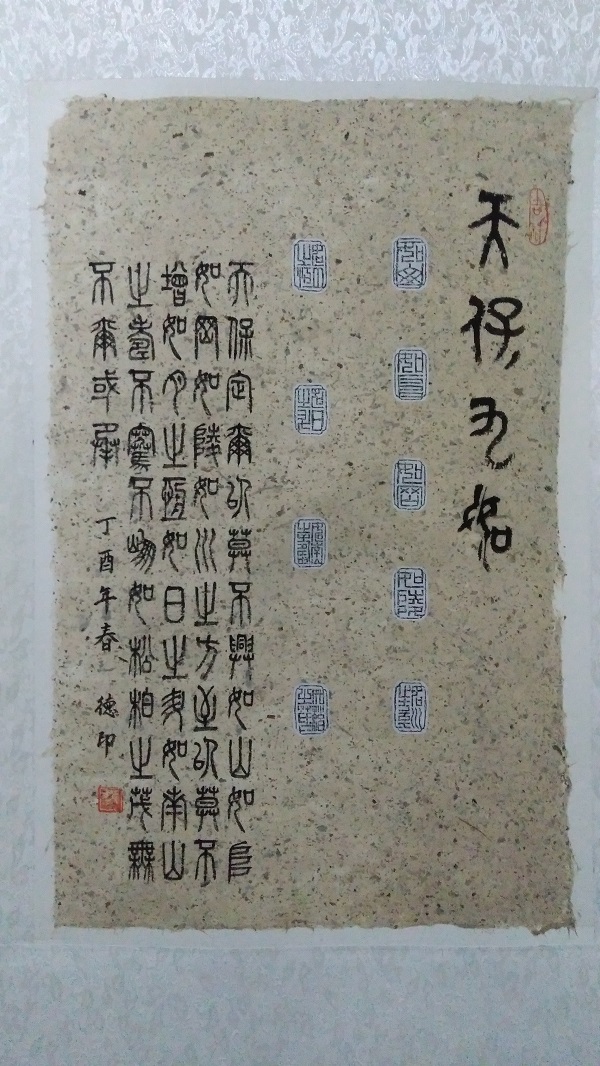 天保九如
如山
如阜
如岡
如陵
如川之方至
如月之恆
如日之升
如南山之壽
如松柏之茂
天保定爾以莫不興如山如阜
如岡如陵如川之方至以莫不
增如月之恆如日之升如南山
之壽不騫不崩如松柏之茂無
不爾或承 丁酉年春 德印